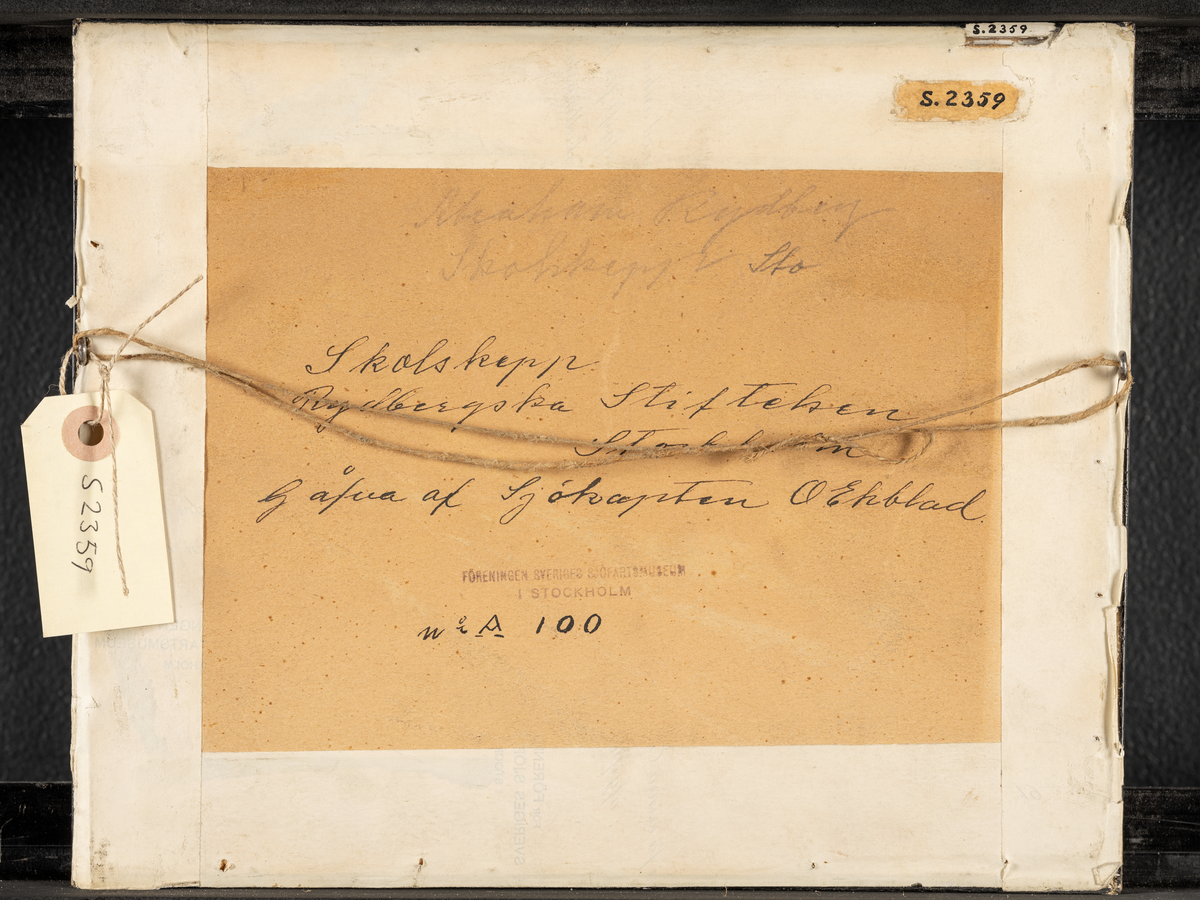 S.2359
S.2359
Abraham Rydberg
Skolskepp Sto
Skolskepp.
Rydbergska Stiftelsen
Stockholm
Gåfva af Sjökapten O Ekblad.
FÖRENINGEN SVERIGES SJÖFARTSMUSEUM
I STOCKHOLM
No A 100
S 2359